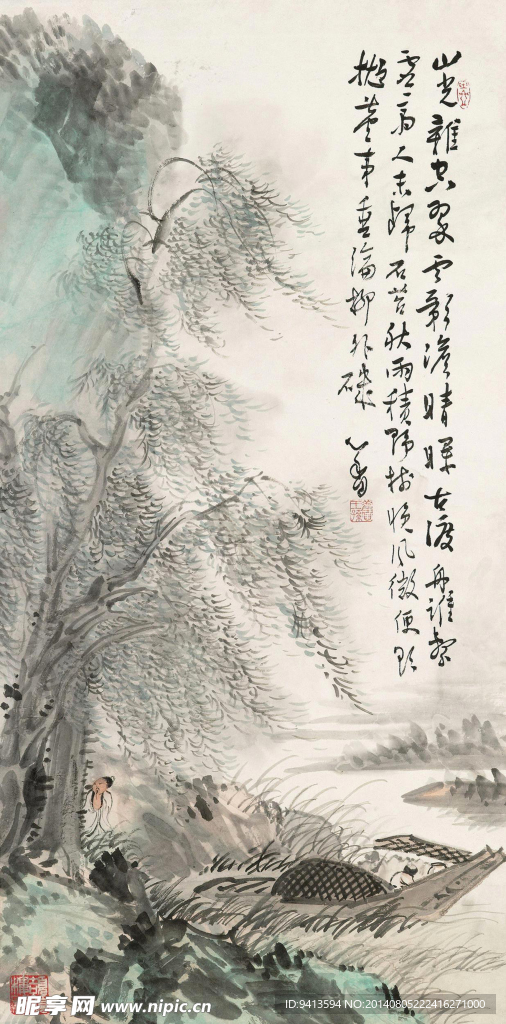 山光雜空翠雲影澹晴暉古渡舟誰繫
虛齋人未歸石苔秋雨積野樹晚風微便欲
拋塵事垂綸柳外磯
心畬
昵享网 www.nipic.cn
ID:9413594 NO:20140805222416271000